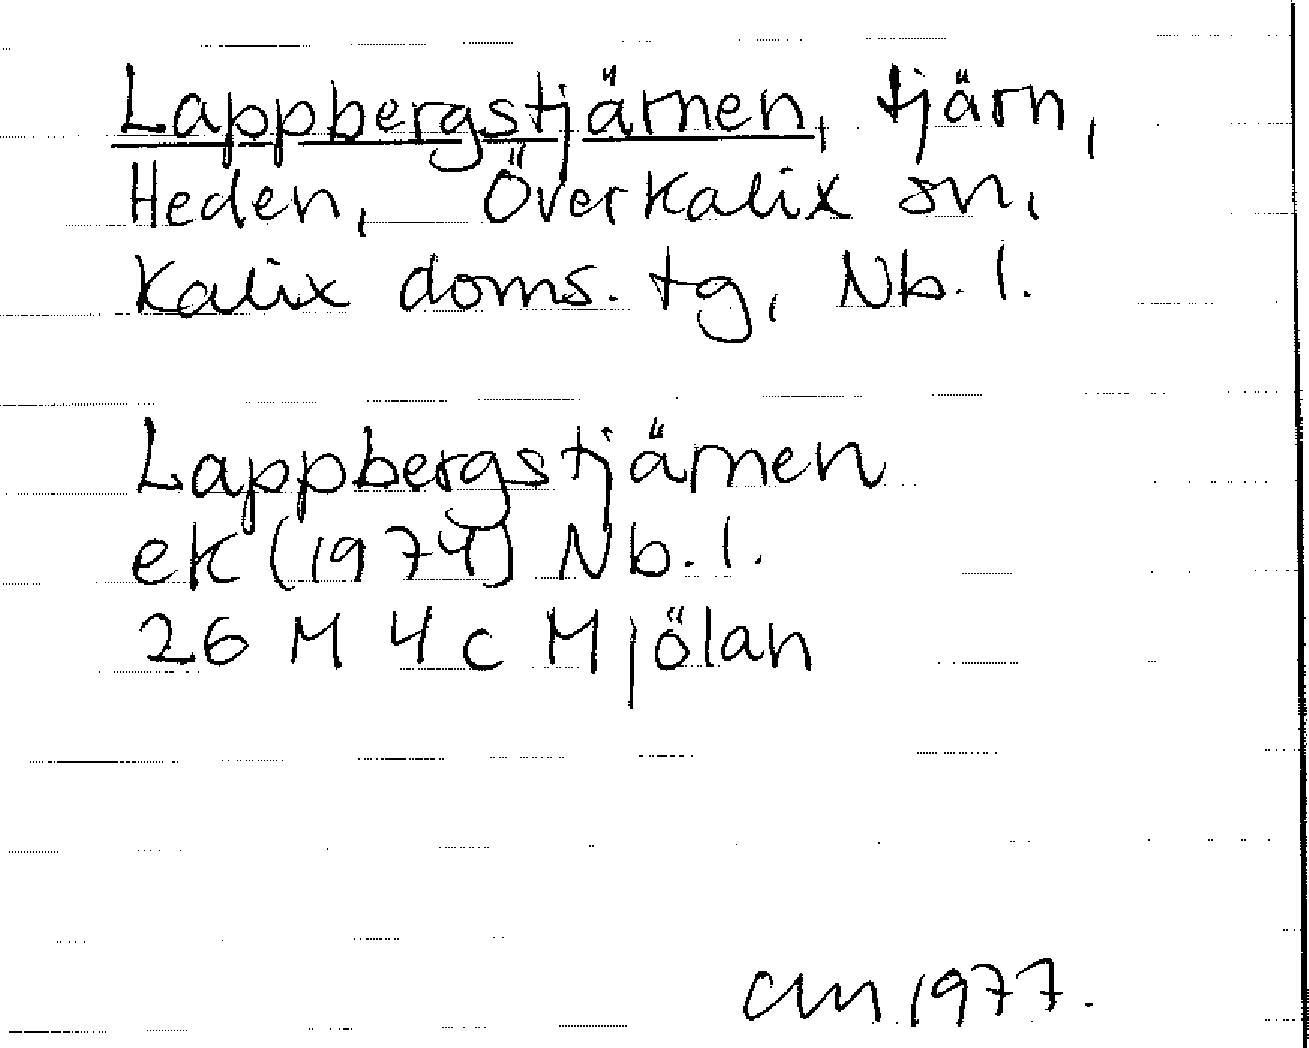 Lappbergstjärnen, tjärn,
Heden, Överkalix sn,
Kalix doms. tg, Nb. l.
Lappbergstjärnen
ek (1974) Nb. l.
26 M 4 c Mjölan
1977.